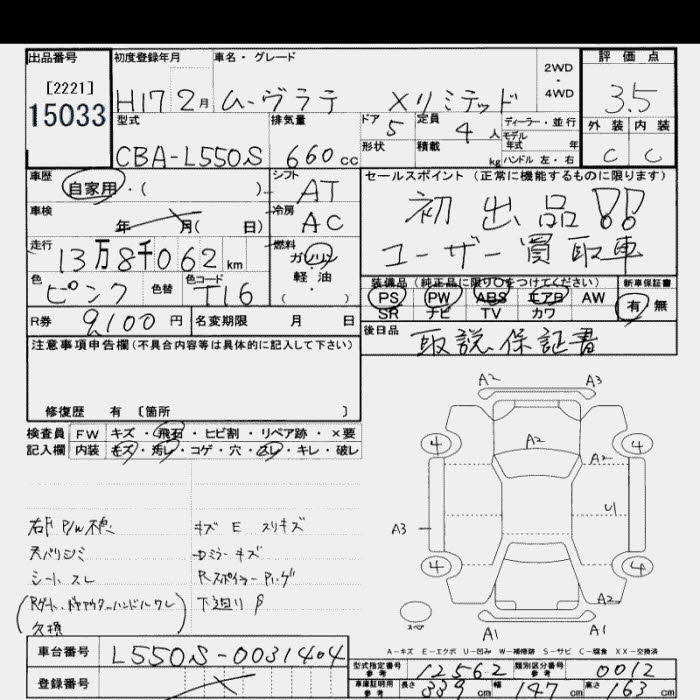 出品番号 初度登録年月 車名・グレード 評価点
[2221]
15033
H17 2月 ムーヴラテ Xリミテッド 2WD・4WD 3.5
型式 排気量 ドア 5 定員 4人 ディーラー・並行 外装 内装
CBA-L550S 660cc 形状 積載 kg モデル年式 年 ハンドル 左・右 C C
車歴 自家用・( ) シフト AT セールスポイント (正常に機能するものに限ります)
車検 年 月( 日) 冷房 AC 初出品!!
走行 13万8千062km 燃料 ガソリン 軽油 ( ・ ) ユーザー買取車
色 ピンク 色替 色コード T16 装備品 (純正品に限り○をつけてください) 新車保証書
PS PW ABS エアB AW 有 無
SR ナビ TV カワ
R券 9,100円 名変期限 月 日 後日品 取説保証書
注意事項申告欄(不具合内容等は具体的に記入して下さい)
修復歴 有 [箇所 ]
検査員 FW キズ・飛石・ヒビ割・リペア跡・×要
記入欄 内装 キズ・汚レ・コゲ・穴・スレ・キレ・破レ
A2 A3
4 A2 4
A2
A3 U
4 4
A2
スペア A1 A1
右F P/W不良 キズ E スリキズ
天バリシミ
シートスレ
Rゲート 下廻り
欠損
A-キズ E-エクボ U-凹み W-補修跡 S-サビ C-腐食 XX-交換済
車台番号 L550S-0031404
型式指定番号 参考 12562 類別区分番号 参考 0012
登録番号 車庫証明用 参考 長さ 339cm 幅 147cm 高さ 163cm